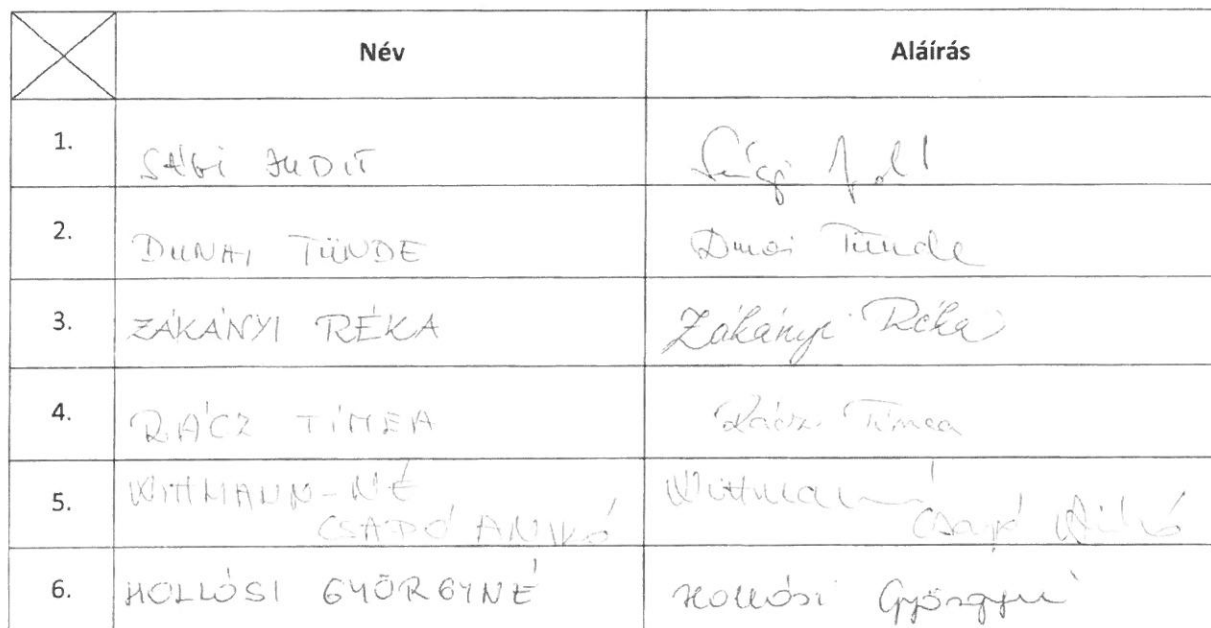 Név Aláírás
1. SÁGI JUDIT Sági
2. DUNAI TÜNDE Dunai Tünde
3. ZÁKÁNYI RÉKA Zákányi Réka
4. RÁCZ TÍMEA Rácz Tímea
5. WITTMANN-NÉ Wittmann
CSAPÓ ANIKÓ Csapó Anikó
6. HOLLÓSI GYÖRGYNÉ Hollósi Györgyné